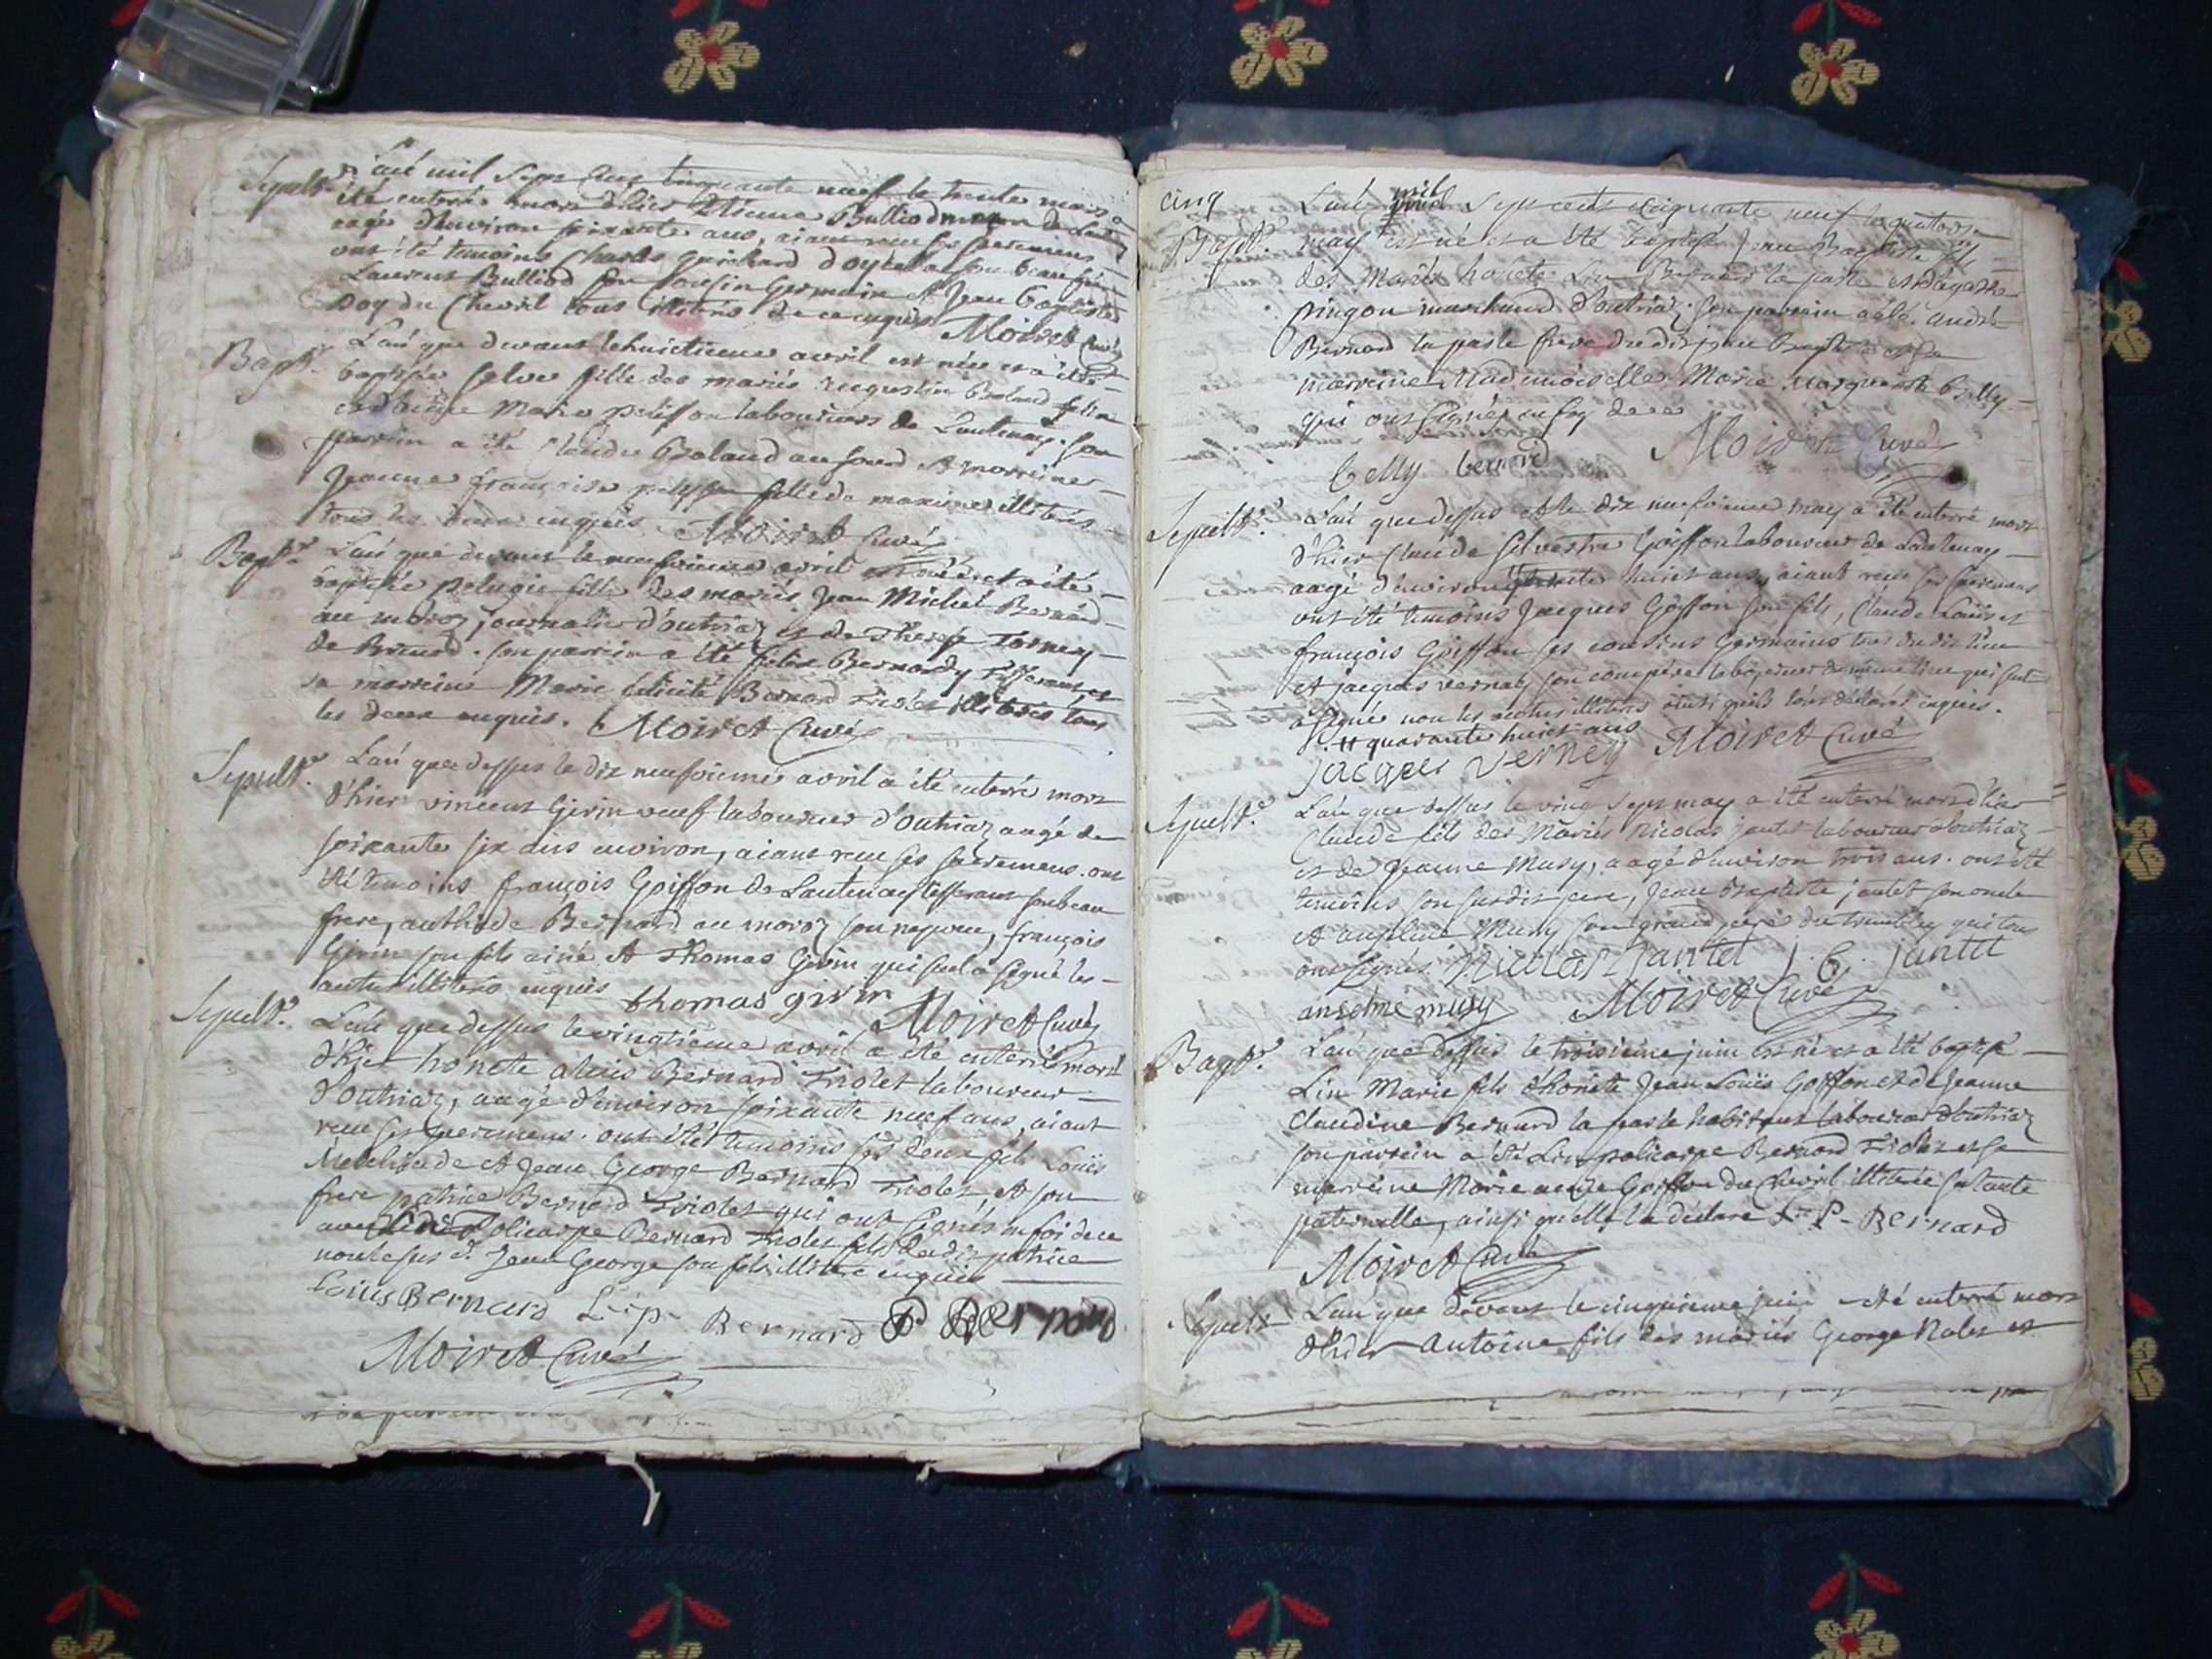 Sepult.e L'an mil sept cens cinquante neuf le trente mars a
été enterré mort d'hier Etienne Bulliod
aagé d'environ soixante ans, aiant receu ses sacremens
ont été temoins Charles guichard d'oyselas son beau frère
Laurent Bulliod son cousin germain et Jean baptiste
Doy du Chevril tous illiterés de ce enquis Moiret Curé
Bapt.e L'an que devant le huictieme avril est née et a été
baptisée fille des mariés augustin Baland
et Marie pelisson laboureurs de Lantenay. son
parrein a été Claude Baland au sourd et marreine
Jeanne françoise pelisson illiterés
tous les deux enquis. Moiret Curé
Bapt.e L'an que devant le neufvieme avril est née et a été
baptisée pelagie fille des mariés Jean Michel Bernard
au moroz journalier d'outriaz et de Therese Tornery
de Brenod. son parrein a été felix Bernard tisserant et
sa marreine Marie felicité Bernard Triolet illiterés tous
les deux enquis. Moiret Curé
Sepult.e L'an que dessus le dix neufvieme avril a été enterré mort
d'hier vincent Girin veuf laboureur d'outriaz aagé de
soixante six ans environ, aiant receu ses sacremens. ont
été temoins françois Goiffon de Lantenay tisserant son beau
frere, anthide Bernard au moroz son nepveu, françois
Girin son fils ainé et Thomas Girin qui seul a signé les
autres illiteres enquis thomas girin Moiret Curé
Sepult.e L'an que dessus le vingtieme avril a été enterré mort
d'hier honete aluis Bernard Triolet laboureur
d'outriaz, aagé d'environ soixante neuf ans, aiant
receu ses sacremens. ont été temoins ses deux fils Louis
Melchiade et Jean George Bernard Triolet, et son
frere patrice Bernard Triolet qui ont signés en foi de ce
avec Policarpe Bernard Triolet fils dudit patrice
non le susd. Jean George son fils illiteré enquis
Louis Bernard L. p. Bernard P Bernard
Moiret Curé
cinq L'an mil sept cents cinquante neuf le quatorze
Bapt.e may est né et a été baptisé Jean Baptiste fils
des mariés honete Lin Bernard la parle et d'agathe
pingon marchand d'outriaz. son parrein a été andré
Bernard la parle frere dudit jean Baptiste et sa
marreine Mademoiselle Marie Marguerite Belly
qui ont signés en foy de ce Moiret Curé
belly bernard
Sepult.e L'an que dessus et le dix neufvieme may a été enterré mort
d'hier Claude Silvestre Goiffon laboureur de Lantenay
aagé d'environ huict ans, aiant receu ses sacremens
ont été temoins Jacques Goiffon son fils, Claude Louis et
françois Goiffon ses cousins germains tous dudit lieu
et jacques vernay son compère laboureur du même lieu qui seul
a signé non les autres illiteres ainsi qu'ils l'ont déclaré enquis.
# quarante huict ans
jacques verney Moiret Curé
Sepult.e L'an que dessus le vingt sept may a été enterré mort d'hier
Claude fils des mariés Nicolas jantet laboureur d'outriaz
et de Jeanne Musy, aagé d'environ trois ans. ont été
temoins son susdit pere, Jean Baptiste jantet son oncle
et anselme Musy son grand pere du tremblay qui tous
ont signés. Nicolas jantet j. b. jantet
anselme musy Moiret Curé
Bapt.e L'an que dessus le troisieme juin est né et a été baptisé
Lin Marie fils d'honete Jean Louis Goiffon et de Jeanne
Claudine Bernard la parle habitant laboureur d'outriaz
son parrein a été Lin policarpe Bernard Triolet et sa
marreine Marie Goiffon du Chevril illiterée sa tante
paternelle, ainsi qu'elle l'a déclaré L. P. Bernard
Moiret Curé
Sepult.e L'an que devant le cinquieme juin a été enterré mort
d'hier Antoine fils des mariés George Nolet et